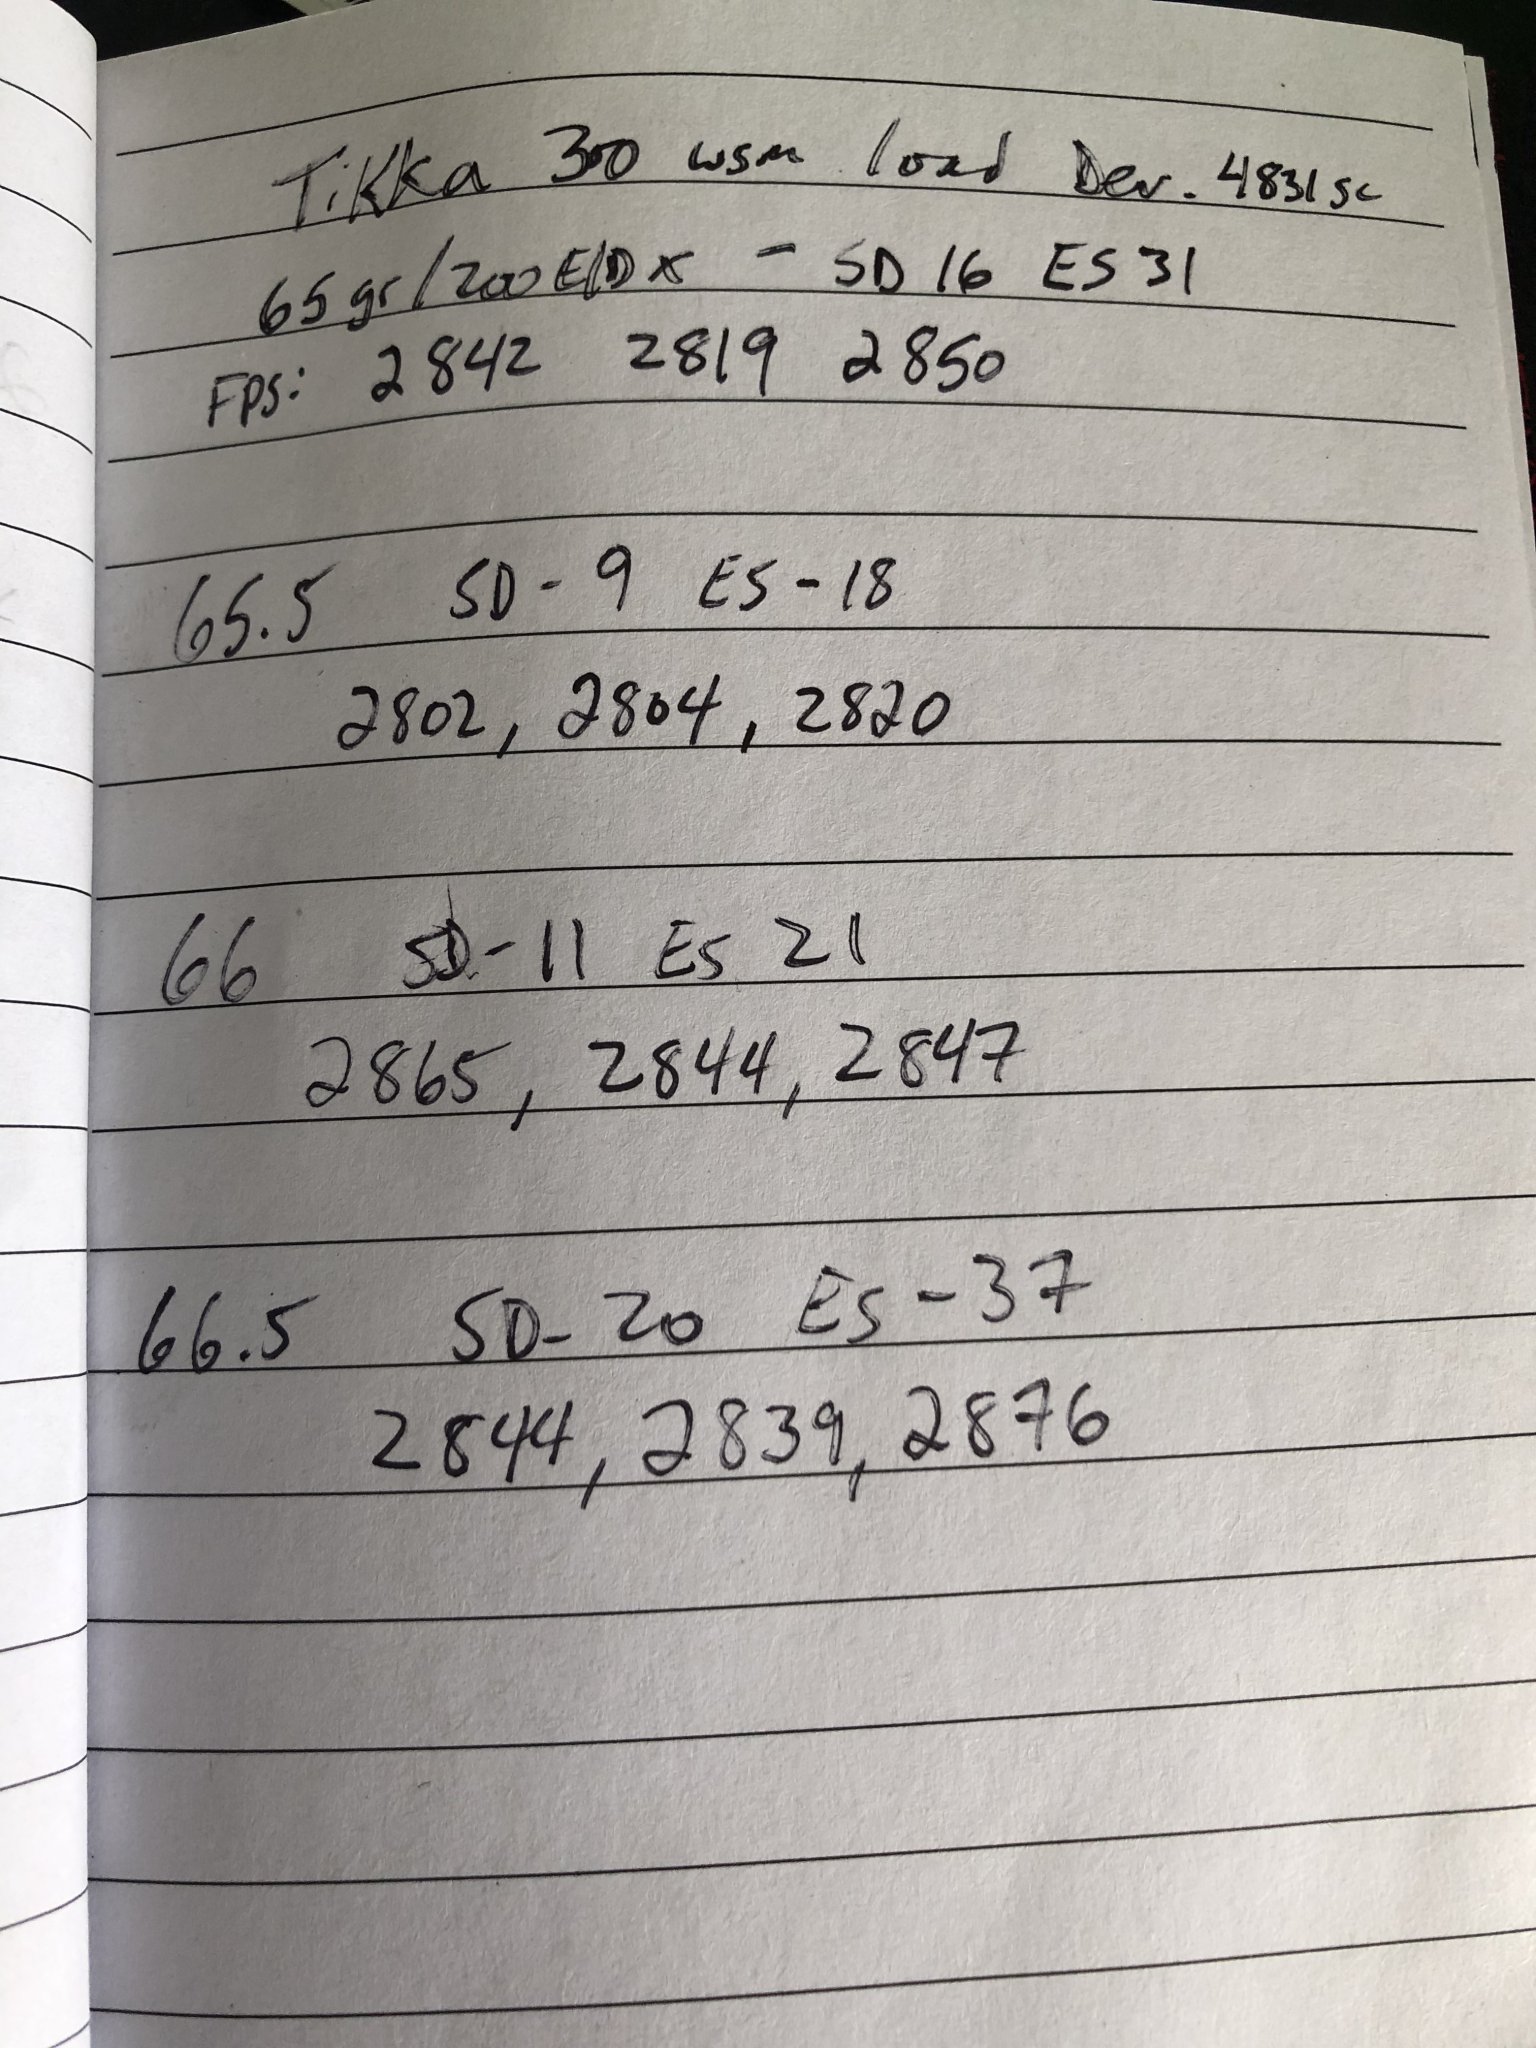 Tikka 300 wsm load Dev. 4831sc
65gr/200 ELDX - SD 16 ES 31
FPS: 2842 2819 2850
65.5 SD-9 ES-18
2802, 2804, 2820
66 SD-11 ES 21
2865, 2844, 2847
66.5 SD-20 ES-37
2844, 2839, 2876